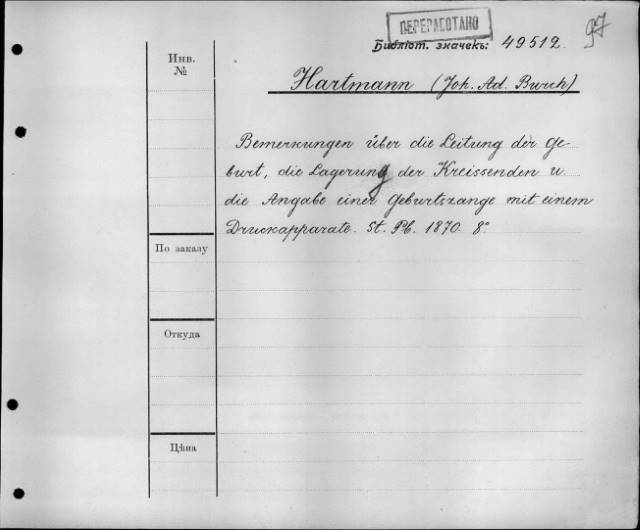 ПЕРЕРАБОТАНО
97
Библіот. значекъ: 49512.
Инв.
№
Hartmann (Joh. Ad. Burch)
Bemerkungen über die Leitung der Ge-
burt, die Lagerung der Kreissenden u.
die Angabe einer Geburtszange mit einem
Druckapparate. St. Pb. 1870. 8°
По заказу
Откуда
Цѣна